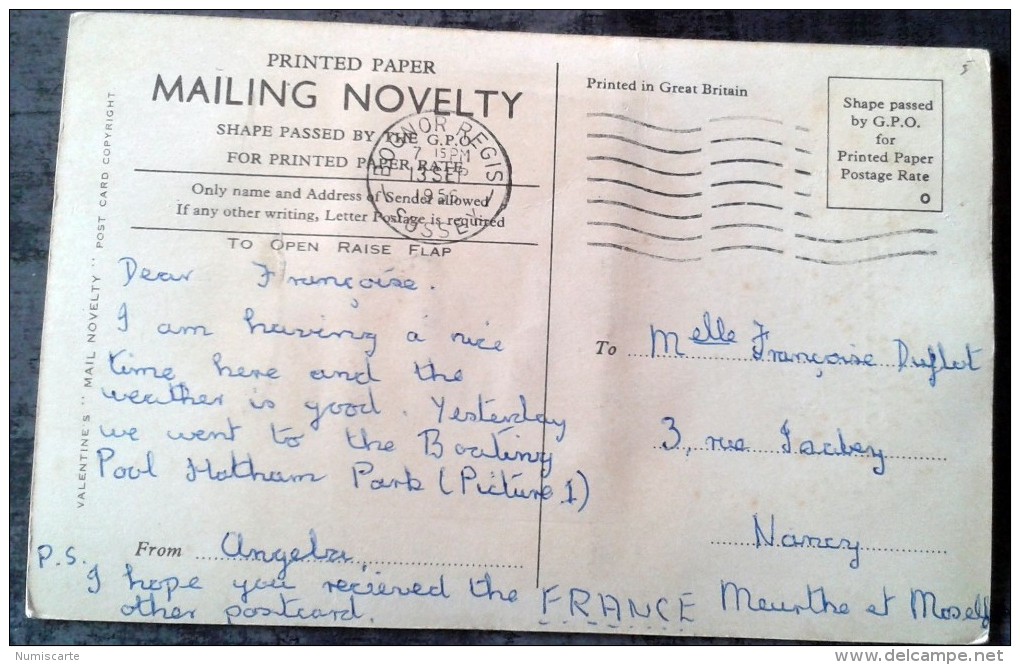 PRINTED PAPER
MAILING NOVELTY
SHAPE PASSED BY THE G.P.O.
FOR PRINTED PAPER RATE
Only name and Address of Sender allowed
If any other writing, Letter Postage is required
TO OPEN RAISE FLAP
BOGNOR REGIS
7 15 PM
13 SEP
1956
SUSSEX
VALENTINE'S "MAIL NOVELTY" POST CARD COPYRIGHT
Dear Françoise.
I am having a nice
time here and the
weather is good. Yesterday
we went to the Boating
Pool Hotham Park (Picture 1)
From Angela,
P.S.
I hope you recieved the
other postcard.
Printed in Great Britain
Shape passed
by G.P.O.
for
Printed Paper
Postage Rate
5
To Melle Françoise Duflot
3, rue Isabey
Nancy
FRANCE Meurthe et Moselle
Numiscarte
delcampe.net